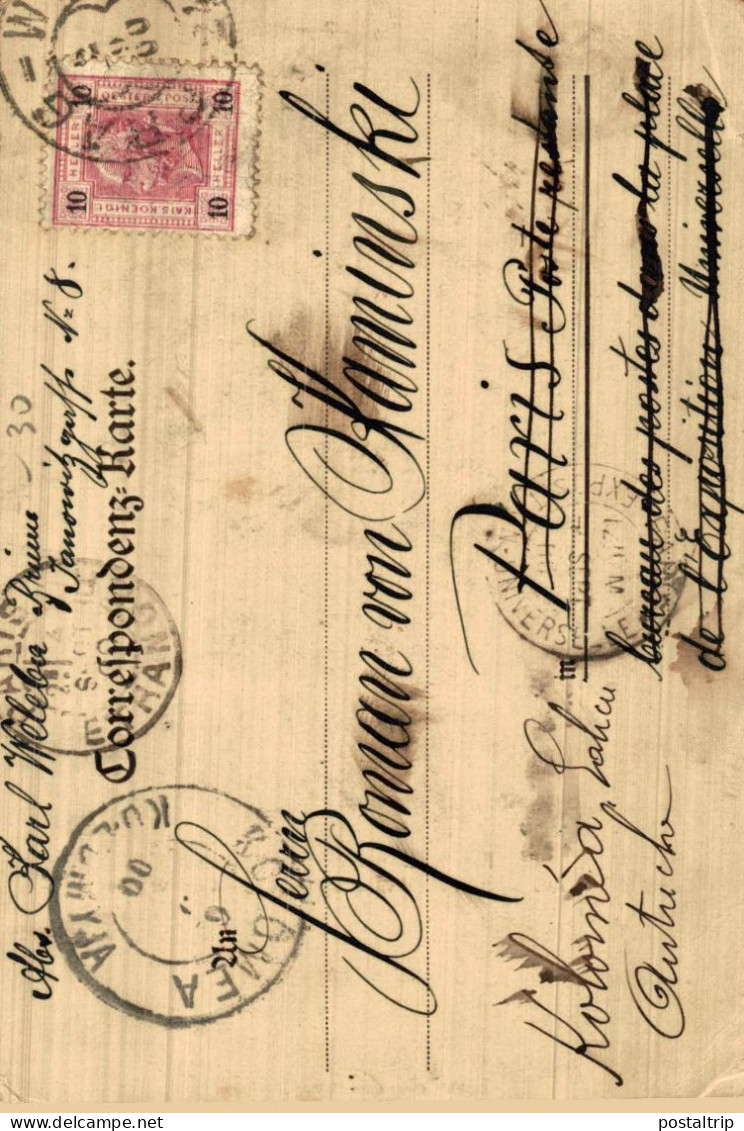 Abs. Karl Woleba Brünn
Janowitzgasse № 8.
30
Correspondenz-Karte.
10 HELLER 10
KAIS. KOENIGL.
10 HELLER 10
An Herrn
Roman von Kaminski
in Paris Poste restante
bureau des postes dans la place
de l'Exposition Universelle
Kolomèa
Autriche
KOLOMEA
KOŁOMYJA
00
postaltrip